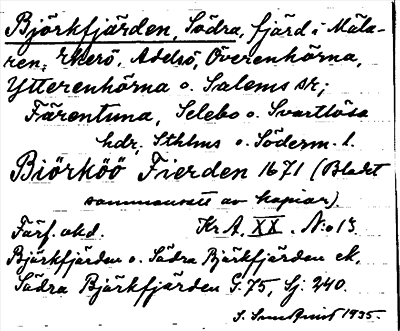 Björkfjärden, Södra, fjärd i Mäla-
ren, Ekerö, Adelsö, Överenhörna,
Ytterenhörna o. Salems sn;
Färentuna, Selebo o. Svartlösa
hdr, Sthlms o. Söderm. l.
Biörköö Fierden 1671 (Bladet
sammansatt av kopior).
Förf. okd. Kr A. XX. N:o 13
Björkfjärden o. Södra Björkfjärden ek.
Södra Björkfjärden G. 75, Sj: 240.
1935.